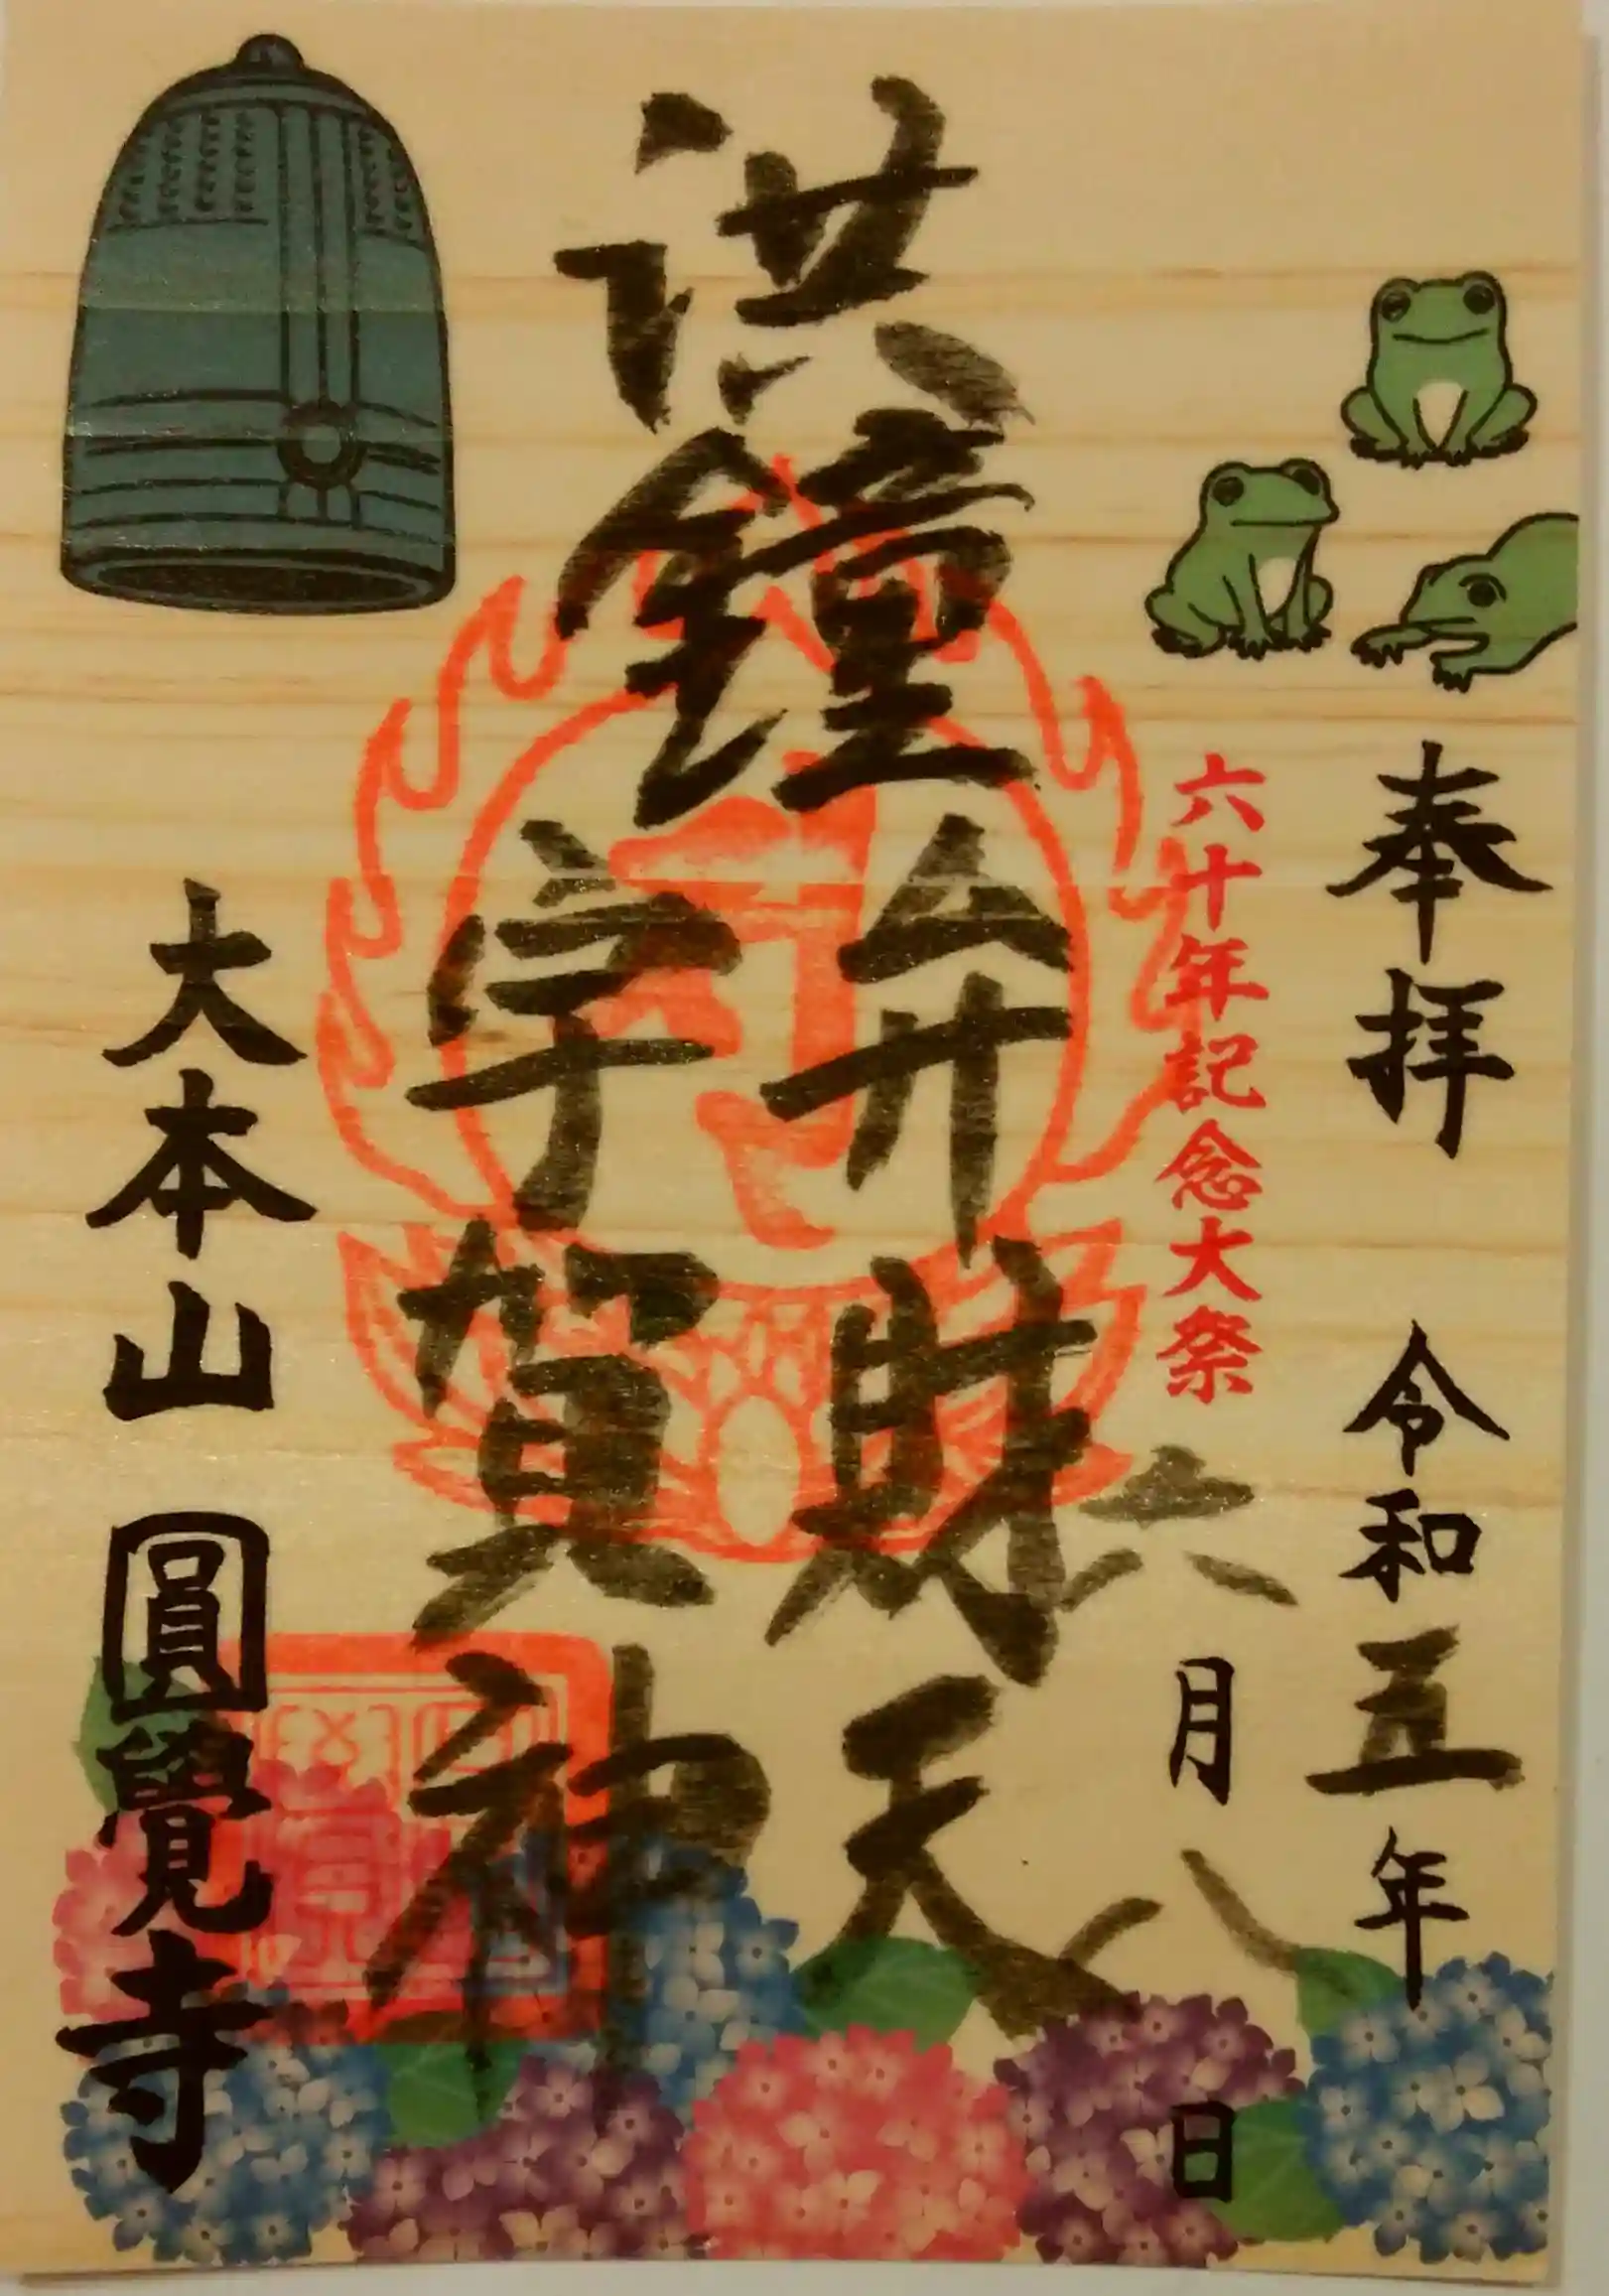 奉拝 令和五年
六十年記念大祭
六月八日
洪鐘
弁財天
宇賀神
大本山 圓覺寺